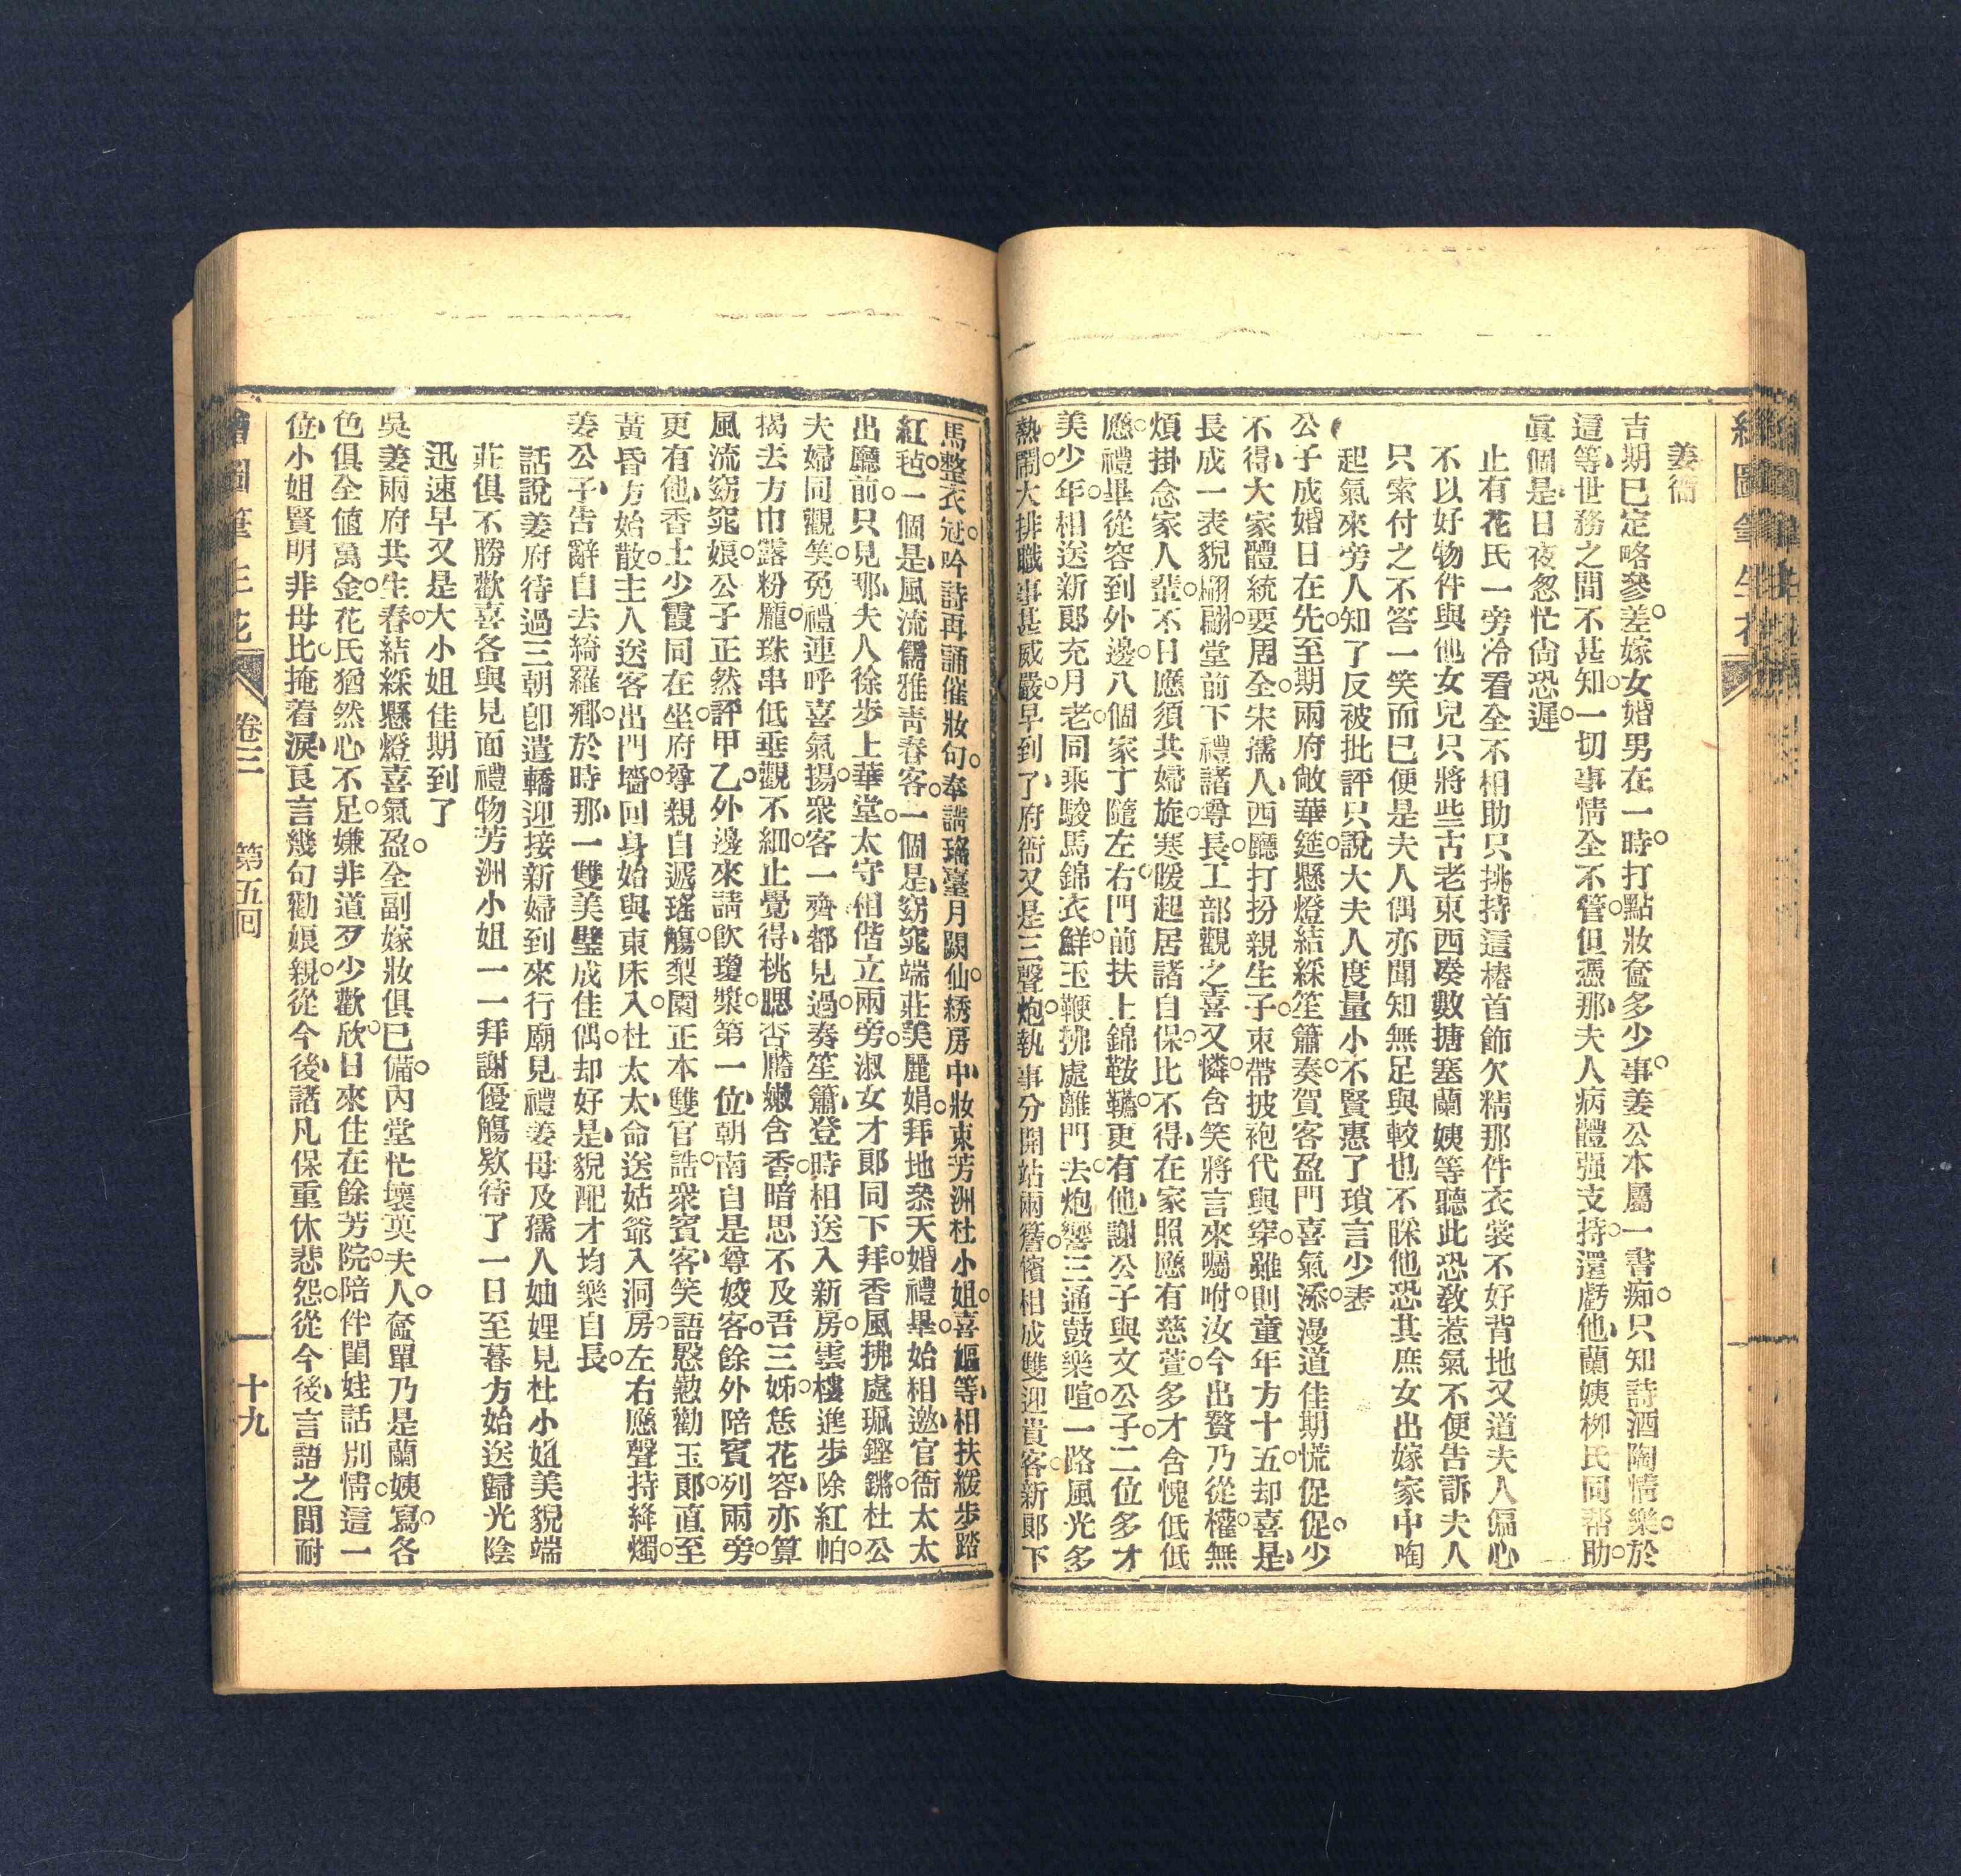 繪圖筆生花
姜衙
吉期已定略參差。嫁女婚男在一時。打點妝奩多少事。姜公本屬一書痴。只知詩酒陶情樂。於
這等、世務之間不甚知。一切事情全不管。但憑那、夫人病體强支持。還虧他、蘭姨柳氏同幫助。
眞個是、日夜怱忙尙恐遲。
止有花氏一旁冷看全不相助只挑持這樁首飾欠精那件衣裳不好背地又道夫人偏心
不以好物件與他女兒只將些古老東西凑數搪塞蘭姨等聽此恐敎惹氣不便告訴夫人
只索付之不答一笑而已便是夫人偶亦聞知無足與較也不睬他恐其庶女出嫁家中啕
起氣來旁人知了反被批評只說大夫人度量小不賢惠了瑣言少表
公子成婚日在先。至期兩府敞華筵。懸燈結綵笙簫奏。賀客盈門喜氣添。漫道佳期慌促促。少
不得、大家體統要周全。宋孺人、西廳打扮親生子。束帶披袍代與穿。雖則童年方十五。却喜是、
長成一表貌翩翩。堂前下禮諸尊長。工部觀之喜又憐。含笑將言來囑咐。汝今出贅乃從權。無
煩掛念家人輩。不日應須共婦旋。寒暖起居諸自保。比不得、在家照應有慈萱。多才含愧低低
應。禮畢從容到外邊。八個家丁隨左右。門前扶上錦鞍韉。更有他、謝公子與文公子。二位多才
美少年。相送新郞充月老。同乘駿馬錦衣鮮。玉鞭拂處離門去。炮響三通鼓樂喧。一路風光多
熱鬧。大排職事甚威嚴。早到了、府衙又是三聲炮。執事分開站兩簷。儐相成雙迎貴客。新郞下
馬整衣冠。吟詩再誦催妝句。奉請瑤臺月闕仙。綉房中、妝束芳洲杜小姐。喜嫗等、相扶緩步踏
紅毡。一個是、風流儒雅靑春客。一個是、窈窕端莊美麗娟。拜地叅天婚禮畢。始相邀、官衙太太
出廳前。只見那、夫人徐步上華堂。太守相偕立兩旁。淑女才郞同下拜。香風拂處珮鏗鏘。杜公
夫婦同觀笑。免禮連呼喜氣揚。衆客一齊都見過。奏笙簫、登時相送入新房。雲樓進步除紅帕。
揭去方巾露粉龐。珠串低垂觀不細。止覺得、桃腮杏臉嫩含香。暗思不及吾三姊。恁花容、亦算
風流窈窕娘。公子正然評甲乙。外邊來請飲瓊漿。第一位、朝南自是尊姣客。餘外陪賓列兩旁。
更有他、香士少霞同在坐。府尊親自遞瑤觴。梨園正本雙官誥。衆賓客、笑語慇懃勸玉郞。直至
黃昏方始散。主人送客出門墻。回身始與東床入。杜太太、命送姑爺入洞房。左右應聲持絳燭。
姜公子、告辭自去綺羅鄕。於時那、一雙美璧成佳偶。却好是、貌配才均樂自長。
話說姜府待過三朝卽遣轎迎接新婦到來行廟見禮姜母及孺人妯娌見杜小姐美貌端
莊俱不勝歡喜各與見面禮物芳洲小姐一一拜謝優觴欵待了一日至暮方始送歸光陰
迅速早又是大小姐佳期到了
吳姜兩府共生春。結綵懸燈喜氣盈。全副嫁妝俱已備。內堂忙壞莫夫人。奩單乃是蘭姨寫。各
色俱全値萬金。花氏猶然心不足。嫌非道歹少歡欣。日來住在餘芳院。陪伴閨娃話別情。這一
位、小姐賢明非母比。掩着淚、良言幾句勸娘親。從今後、諸凡保重休悲怨。從今後、言語之間耐
繪圖筆生花
卷三
第五回
十九